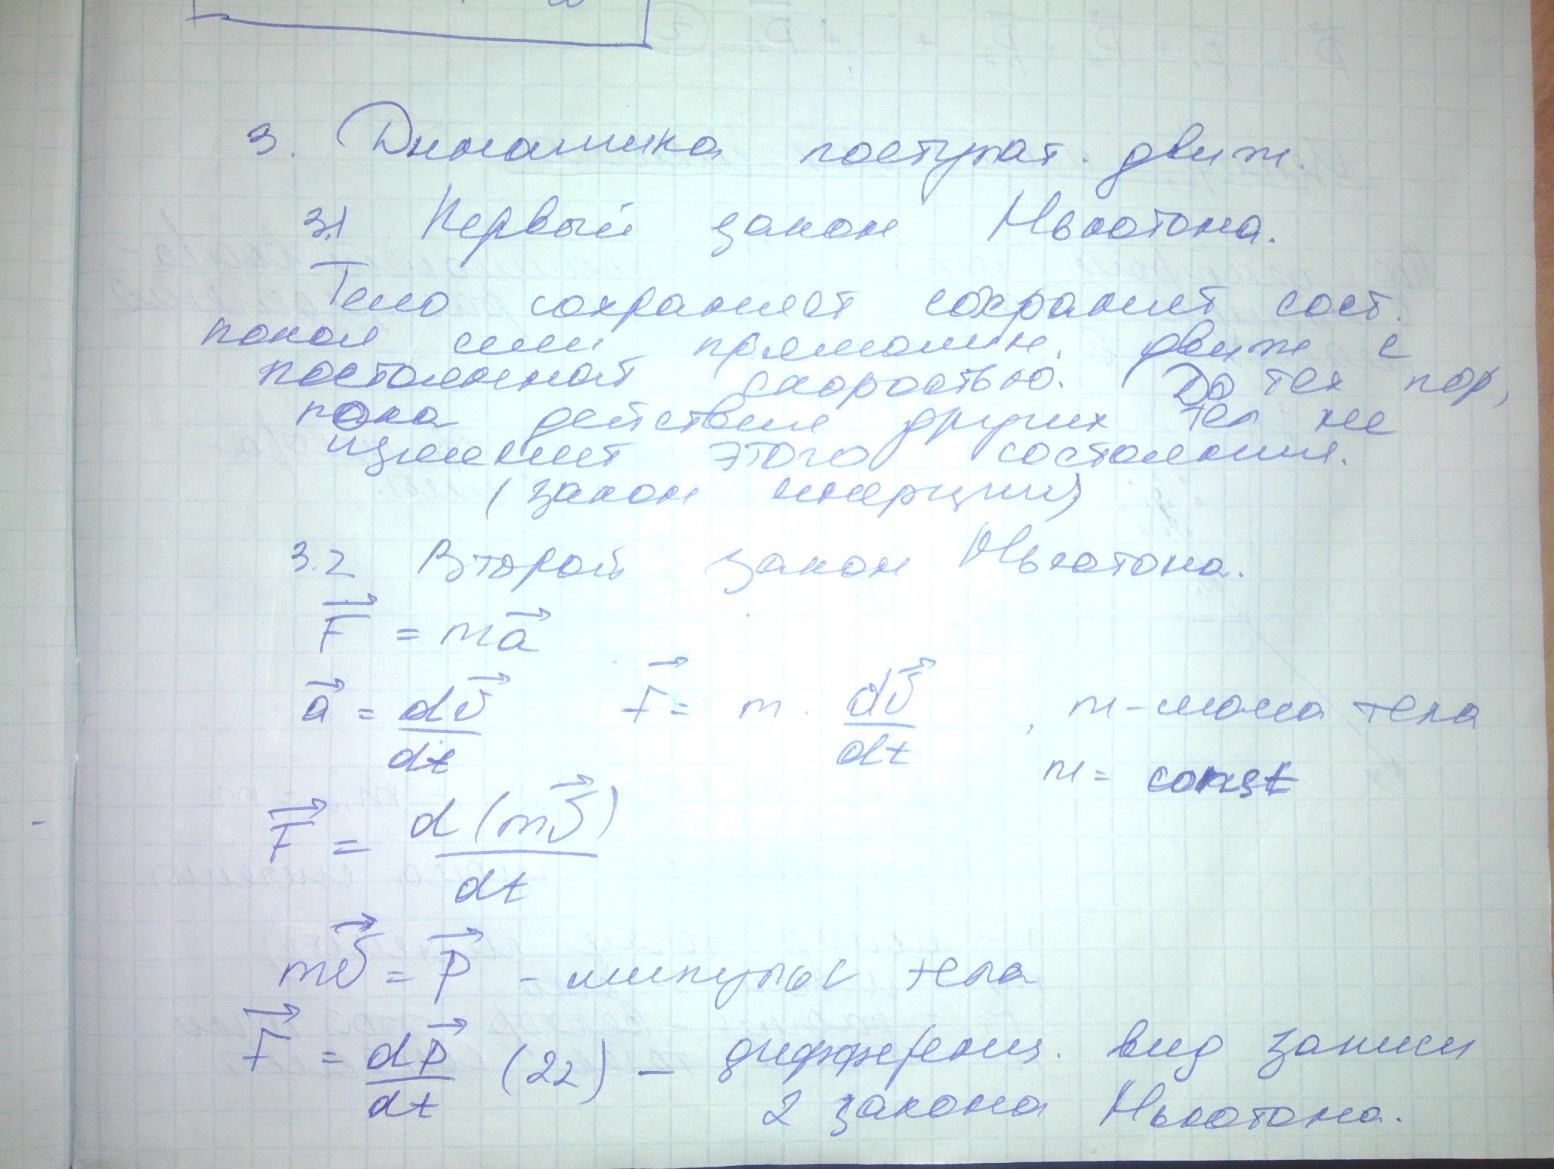 3. Динамика поступат. движ.
3.1 Первый закон Ньютона.
Тело сохраняет сохранит сост.
покоя или прямолин. движ с
постоянной скоростью. До тех пор,
пока действия других тел не
изменит этого состояния.
(закон инерции)
3.2 Второй закон Ньютона.
F⃗ = ma⃗
a⃗ = dv⃗/dt F⃗ = m · dv⃗/dt , m - масса тела
m = const
F⃗ = d(mv⃗)/dt
mv⃗ = p⃗ - импульс тела
F⃗ = dp⃗/dt (22) — дифференц. вид записи
2 закона Ньютона.